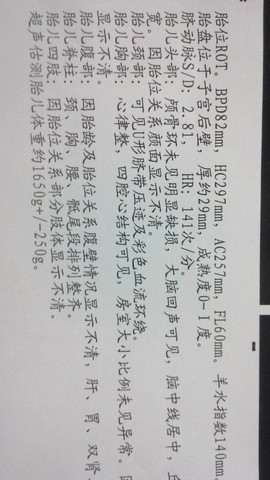 胎位ROT。BPD82mm，HC297mm，AC257mm，FL60mm。羊水指数140mm，
胎盘位于子宫后壁，厚约29mm，成熟度0-I度。
脉动脉S/D：2.81，HR：141次/分。
胎儿头部：颅骨环未见明显缺损，大脑回声可见，脑中线居中，丘
宽。因胎位关系颜面显示不清。
胎儿颈部：可见U形脐带压迹及彩色血流环绕。
胎儿胸部：心律整，四腔心结构可见，房室大小比例未见异常。
显示不清。
胎儿腹部：因胎龄及胎位关系腹壁情况显示不清，肝、胃、双肾、
胎儿脊柱：颈、胸、腰、骶尾段排列整齐。
胎儿四肢：因胎位关系部分肢体显示不清。
超声估测胎儿体重约1650g+/-250g。